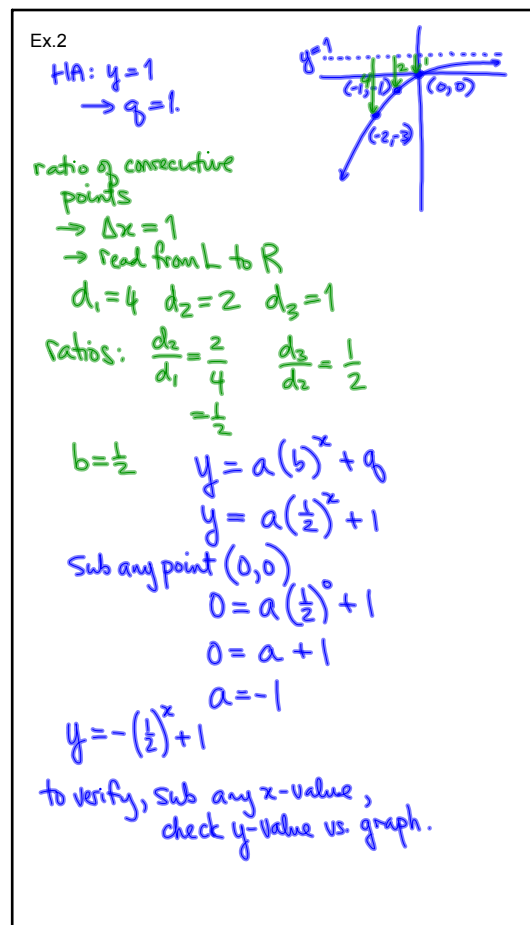 Ex.2
HA: y=1
→ q=1.
y=1
4 2 1
(-1,-1) (0,0)
(-2,-3)
ratio of consecutive
points
→ Δx=1
→ read from L to R
d₁=4 d₂=2 d₃=1
ratios: d₂/d₁ = 2/4 d₃/d₂ = 1/2
= 1/2
b=1/2 y = a(b)ˣ + q
y = a(1/2)ˣ + 1
Sub any point (0,0)
0 = a(1/2)⁰ + 1
0 = a + 1
a = -1
y = -(1/2)ˣ + 1
to verify, sub any x-value,
check y-value vs. graph.